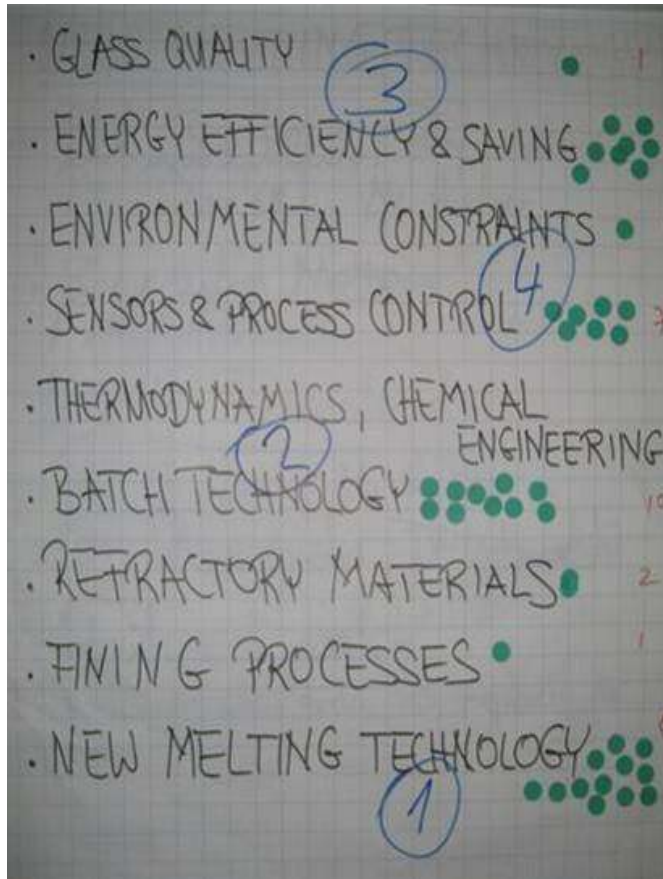 · GLASS QUALITY 1
3
· ENERGY EFFICIENCY & SAVING
· ENVIRONMENTAL CONSTRAINTS
4
· SENSORS & PROCESS CONTROL
· THERMODYNAMICS, CHEMICAL
ENGINEERING
2
· BATCH TECHNOLOGY
· REFRACTORY MATERIALS 2
· FINING PROCESSES 1
· NEW MELTING TECHNOLOGY
1